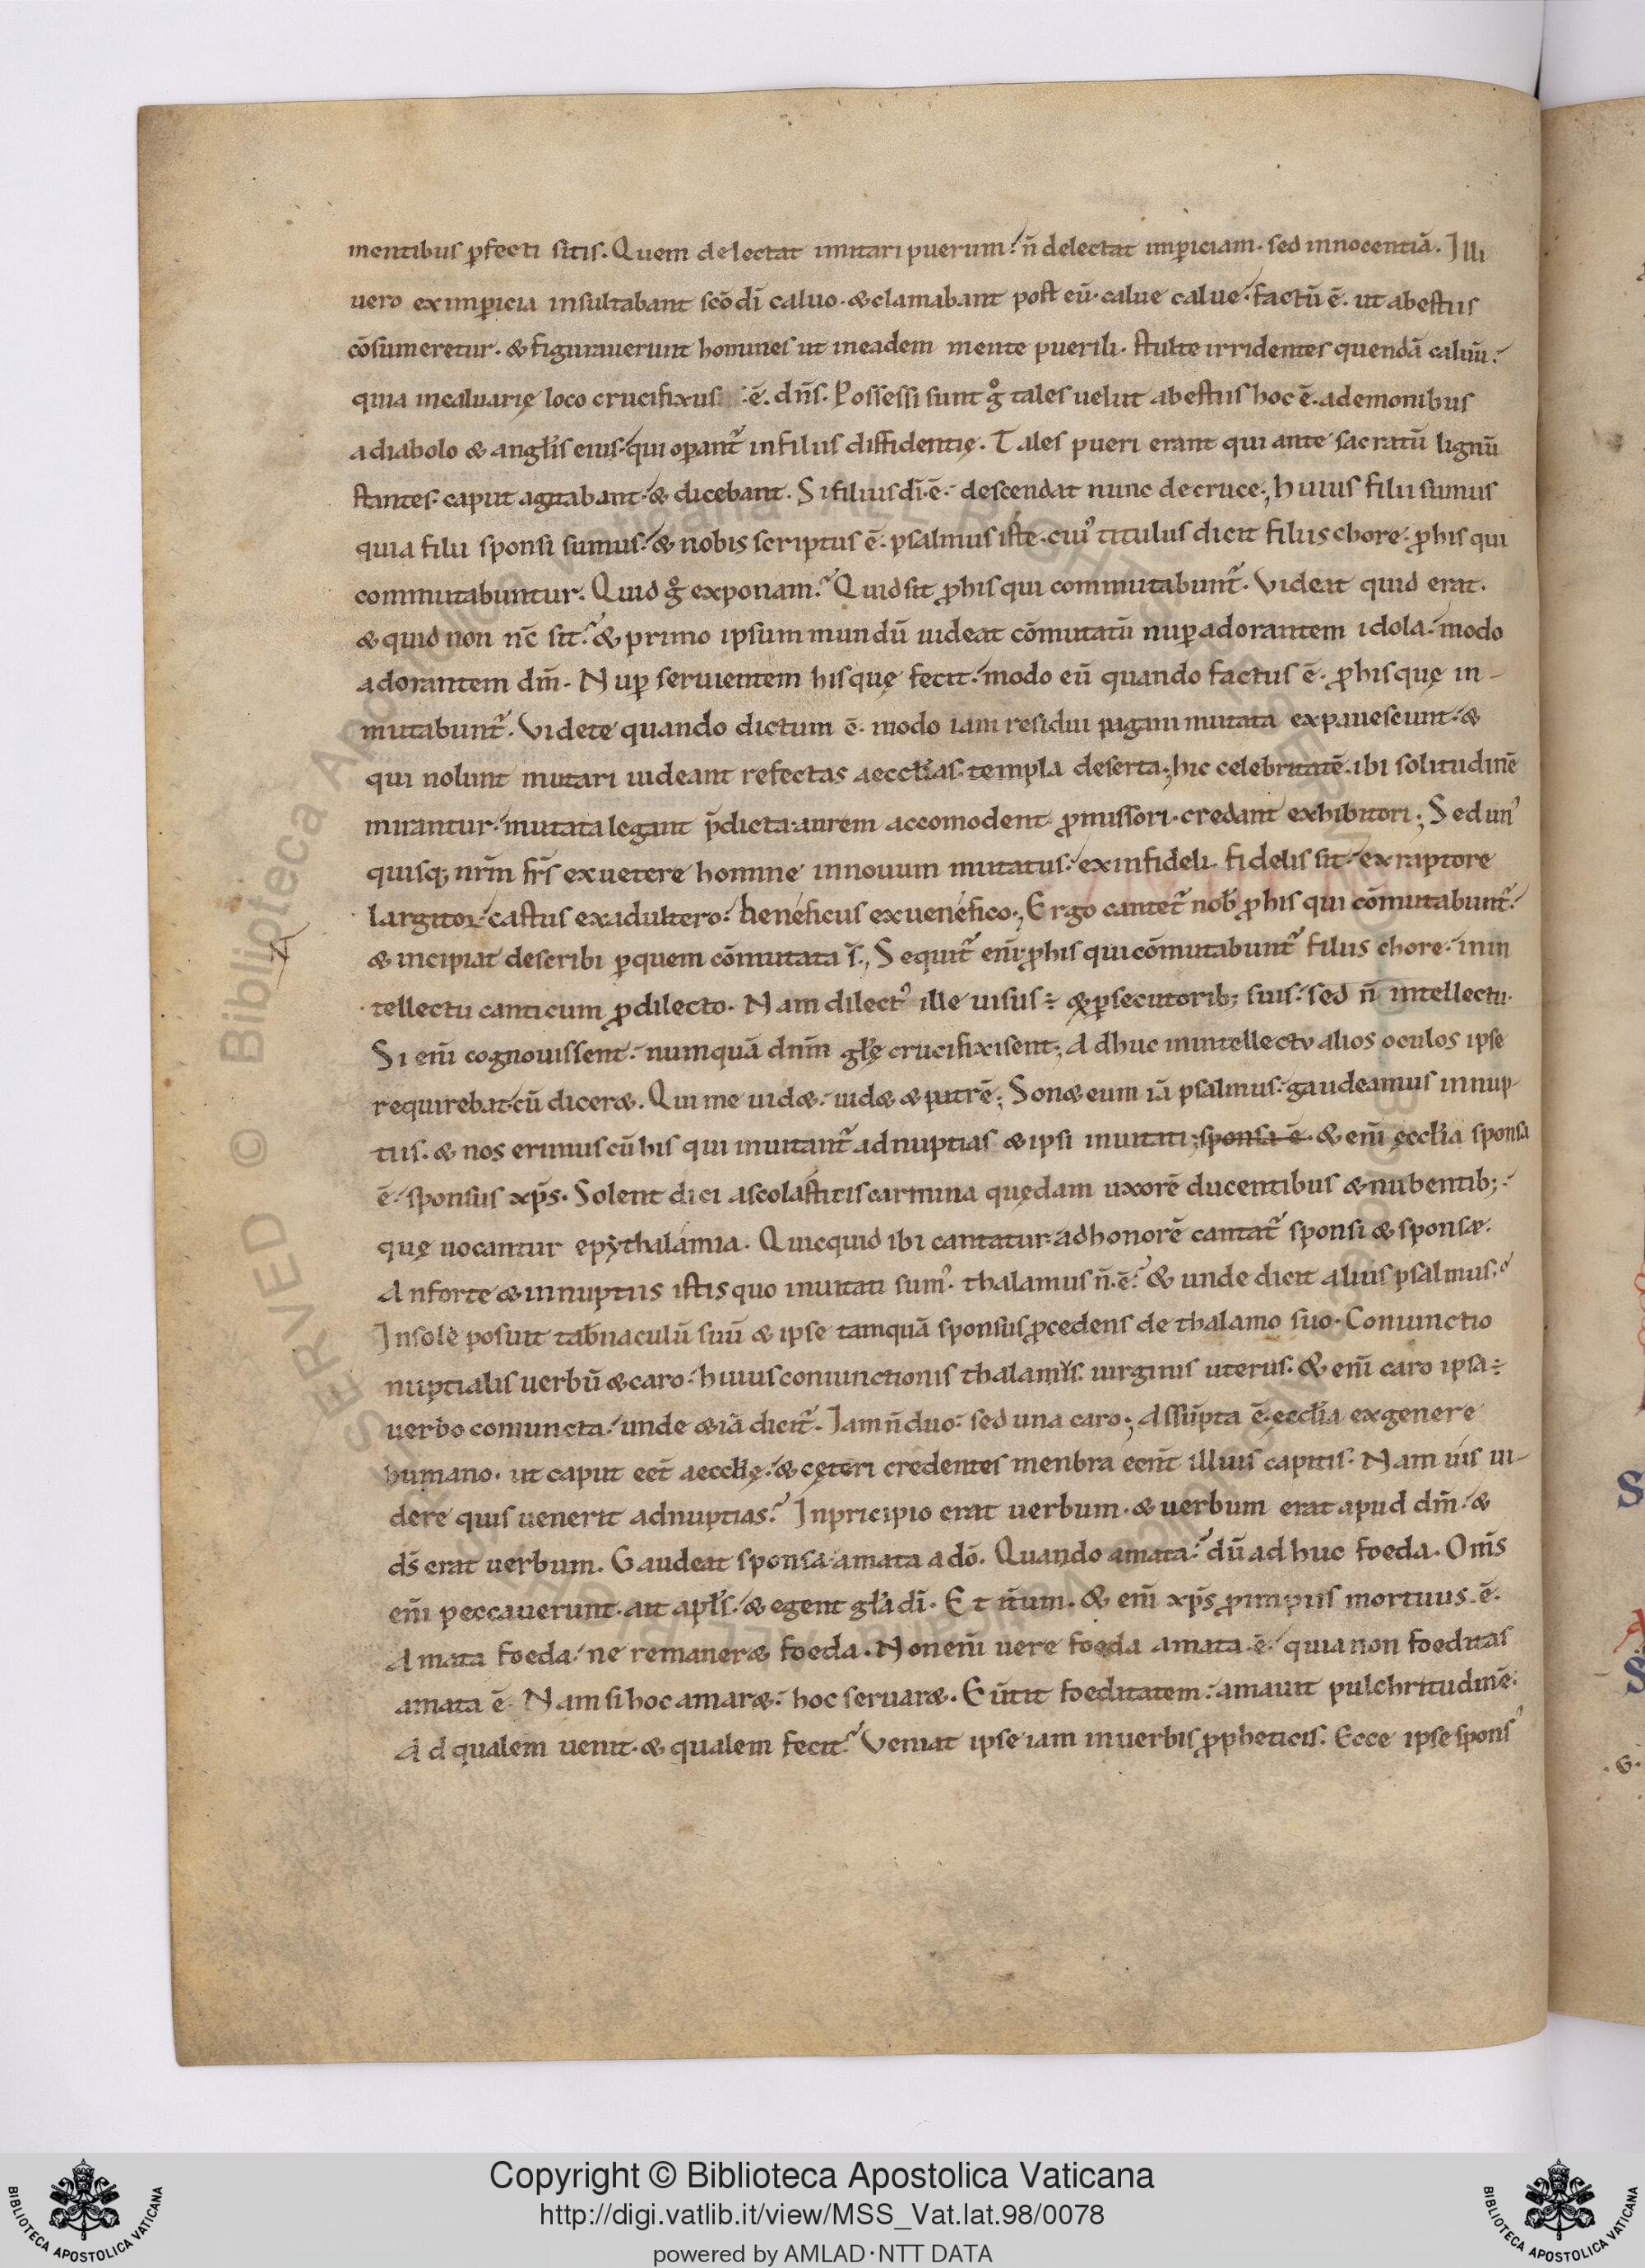 mentibus ꝑfecti sitis. Quem delectat imitari puerum? n̄ delectat imꝑiciam. sed innocentiā. Illi
uero ex imꝑicia insultabant scō dī caluo. & clamabant post eū. calue calue. factū ē. ut abestiis
cōsumeretur. & figurauerunt homines ut ineadem mente puerili. stulte irridentes quendā caluū.
quia incaluarię loco crucifixus ē. dn̄s. Possessi sunt g̊ tales uelut abestiis hoc ē. ademonibus
adiabolo & angł̄is eius. qui oꝑant᷑ infiliis diffidentię. Tales pueri erant qui ante sacratū lignū
stantes. caput agitabant. & dicebant. Si filius dī ē. descendat nunc decruce., huius filii sumus
quia filii sponsi sumus. & nobis scriptus ē. psalmus iste. cui᾽ titulus dicit filiis chore. ꝓhis qui
commutabuntur. Quid g̊ exponam? Quid sit ꝓhis qui commutabunt᷑. Videat quid erat.
& quid non nc̄ sit? & primo ipsum mundū uideat cōmutatū nuꝑ adorantem idola. modo
adorantem dm̄. Nuꝑ seruientem his quę fecit. modo eū quando factus ē. ꝓhis quę in-
mutabunt᷑. Videte quando dictum ē. modo iam residui pagani mutata expauescunt. &
qui nolunt mutari uideant refectas aeccł̄ias. templa deserta., hic celebritatē. ibi solitudinē
mirantur. mutata legant p̄dicta. aurem accomodent ꝓmissori. credant exhibitori; Sed un᾽
quisq; nrm̄ frs̄ exuetere homine innouum mutatus. exinfideli fidelis sit. exraptore
largitor. castus exadultero. beneficus exuenefico., Ergo cantet᷑ nob̄ ꝓhis qui cōmutabunt᷑.
& incipiat describi ꝑquem cōmutata s̄., Sequit᷑ eni᷑. ꝓhis qui cōmutabunt᷑ filiis chore. inin
tellectu canticum ꝓdilecto. Nam dilect᾽ ille uisus ÷ & ꝑsecutorib; suis. sed n̄ intellectu.
Si eni᷑ cognouissent. numquā dnm̄ głę̄ crucifixisent., Adhuc inintellectv alios oculos ipse
requirebat. cū dicer&. Qui me uid&. uid& & patrē; Son& eum iā psalmus. gaudeamus innup-
tiis. & nos erimus cū his qui inuitant᷑ adnuptias & ipsi inuitati; sponsa ē. & eni᷑ ęccł̄ia sponsa
ē. sponsus xp̄s. Solent dici ascolastitis carmina quędam uxorē ducentibus & nubentib;
quę uocantur epẏthalamia. Quicquid ibi cantatur adhonorē cantat᷑ sponsi & sponsæ.
Anforte & innuptiis istis quo inuitati sum᾽. thalamus n̄ ē? & unde dicit alius psalmus?
Insole posuit tab̄naculū suū & ipse tamquā sponsus ꝓcedens de thalamo suo. Coniunctio
nuptialis uerbū & caro. huius coniunctionis thalamus. uirginis uterus. & eni᷑ caro ipsa ÷
uerbo coniuncta. unde & iā dicit᷑. Iam n̄ duo. sed una caro; Assūpta ē. eccł̄ia exgenere
humano. ut caput eet̄ aeccł̄ię. & cęteri credentes menbra eent̄ illius capitis. Nam uis ui-
dere quis uenerit adnuptias? Inpricipio erat uerbum. & uerbum erat apud dm̄. &
ds̄ erat uerbum. Gaudeat sponsa amata adō. Quando amata? dū adhuc foeda. Om̄s
eni᷑ peccauerunt. ait apł̄s. & egent gł̄a dī. Et it̄um. & eni᷑ xp̄s ꝓimpiis mortuus ē.
Amata foeda. ne remaner& foeda. Non eni᷑ uere foeda amata ē. quia non foeditas
amata ē. Nam si hoc amar&. hoc seruar&. Eūtit foeditatem. amauit pulchritudinē.
Ad qualem uenit. & qualem fecit? Veniat ipse iam inuerbis ꝓpheticis. Ecce ipse spons᾽
Copyright © Biblioteca Apostolica Vaticana
http://digi.vatlib.it/view/MSS_Vat.lat.98/0078
powered by AMLAD·NTT DATA
BIBLIOTECA APOSTOLICA VATICANA
BIBLIOTECA APOSTOLICA VATICANA